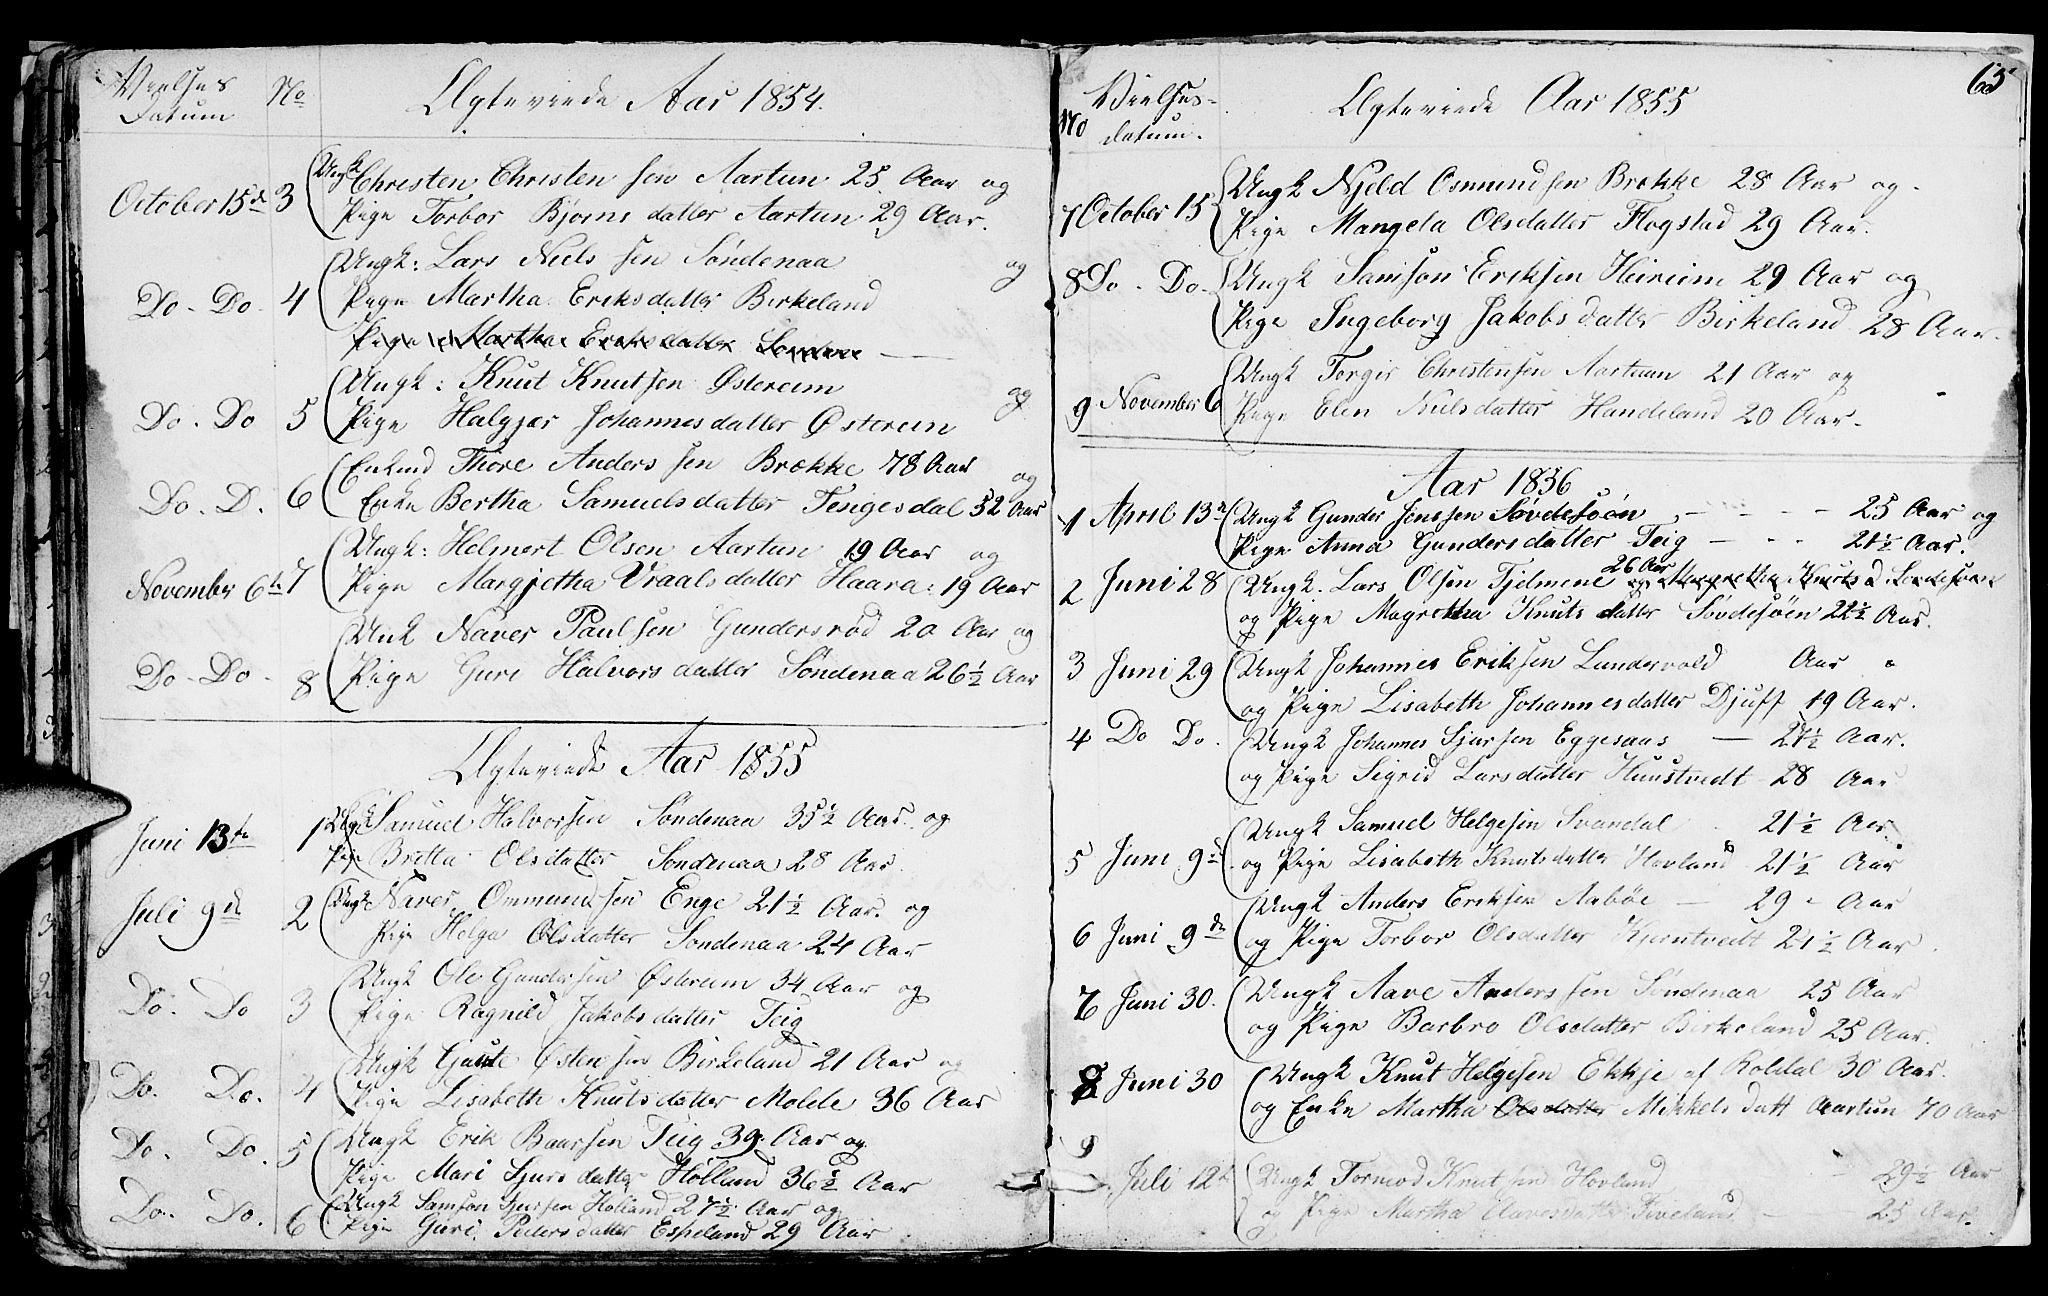 Vielses Datum No Ægteviede Aar 1854.
October 15de 3 Ungk Christen Christensen Aartun 25 Aar og
Pige Torbor Bjørnsdatter Aartun 29 Aar.
Ungk: Lars Nielssen Søndenaa og
Do - Do - 4 Pige Martha Eriksdatter Birkeland
Pige Martha Eriksdatter
Ungk: Knut Knutsen Østereim og
Do. Do 5 Pige Halgjer Johannesdatter Østereim
Enkmd Thore Anderssen Brække 78 Aar og
Do. D. 6 Enke Bertha Samuelsdatter Tengesdal 52 Aar
Ungk: Helmert Olsen Aartun 19 Aar og
November 6te 7 Pige Margjetha Vraalsdatter Haara: 19 Aar
Unk Naver Paulsen Gundersrød 20 Aar og
Do - Do - 8 Pige Guri Halvorsdatter Søndenaa 26½ Aar
Ægteviede Aar 1855
Juni 13te 1 Ungk Samuel Halvorsen Søndenaa 35½ Aar og
Pige Britta Olsdatter Søndenaa 28 Aar.
Juli 9de 2 Ungk Naver Ommundsen Enge 21½ Aar. og
Pige Helga Olsdatter Søndenaa 24 Aar
Ungk Ole Gundersen Østereim 34 Aar og
Do. Do 3 Pige Ragnild Jakobsdatter Teig
Ungk Gaute Østensen Birkeland 21 Aar og
Do. Do. 4 Pige Lisabeth Knutsdatter Molde 36 Aar
Do. Do. 5 Ungk Erik Baarsen Teig 39 Aar og
Pige Mari Sjursdatter Hølland 36½ Aar
Do. Do. 6 Ungk Samson Sjursen Holland 27½ Aar og
Pige Guri Pedersdatter Espeland 29 Aar
65
No Vielses-datum. Ægteviede Aar 1855
7 October 15 Ungk Njeld Osmundsen Brekke 28 Aar og
Pige Mangela Olsdatter Flogstad 29 Aar.
8 Do - Do. Ungk Samson Eriksen Heireim 29 Aar og
Pige Ingeborg Jakobsdatter Birkeland 28 Aar.
Ungk Torgir Christensen Aartuun 21 Aar og
9 November 6 Pige Elen Nielsdatter Handeland 20 Aar.
Aar 1856
1 April 13n Ungk Gunder Jonssen Søvdesøøn 25 Aar og
Pige Anna Gundersdatter Teig 21½ Aar.
2 Juni 28 Ungk. Lars Olsen Tjelmene 26 Aar og Margretha Knutsd
og Pige Magretha Knutsdatter Søvdesøen 22½ Aar.
3 Juni 29 Ungk Johannes Eriksen Lundervold Aar
og Pige Lisabeth Johannesdatter Djuff 19 Aar.
4 Do Do. Ungk Johannes Sjursen Eggesaas 21½ Aar.
og Pige Sigrid Larsdatter Huustvedt 28 Aar
Ungk Samuel Helgesen Svandal 21½ Aar
5 Juni 9de og Pige Lisabeth Knutsdatter Hovland 21½ Aar
Ungk Anders Eriksen Aabøe 29 Aar
6 Juni 9de og Pige Torbor Olsdatter Kjerntvedt 21½ Aar
7 Juni 30. Ungk Aave Anderssen Søndenaa 25 Aar
og Pige Barbro Olsdatter Birkeland 25 Aar.
8 Juni 30 Ungk Knut Helgesen Ekkje af Roldal 30 Aar.
og Enke Martha Olsdatter Mikkelsdatt Aartun 70 Aar
9
Juli 12te Ungk Tormod Knutsen Hovland 29½ Aar
og Pige Martha Tiveland 25 Aar.